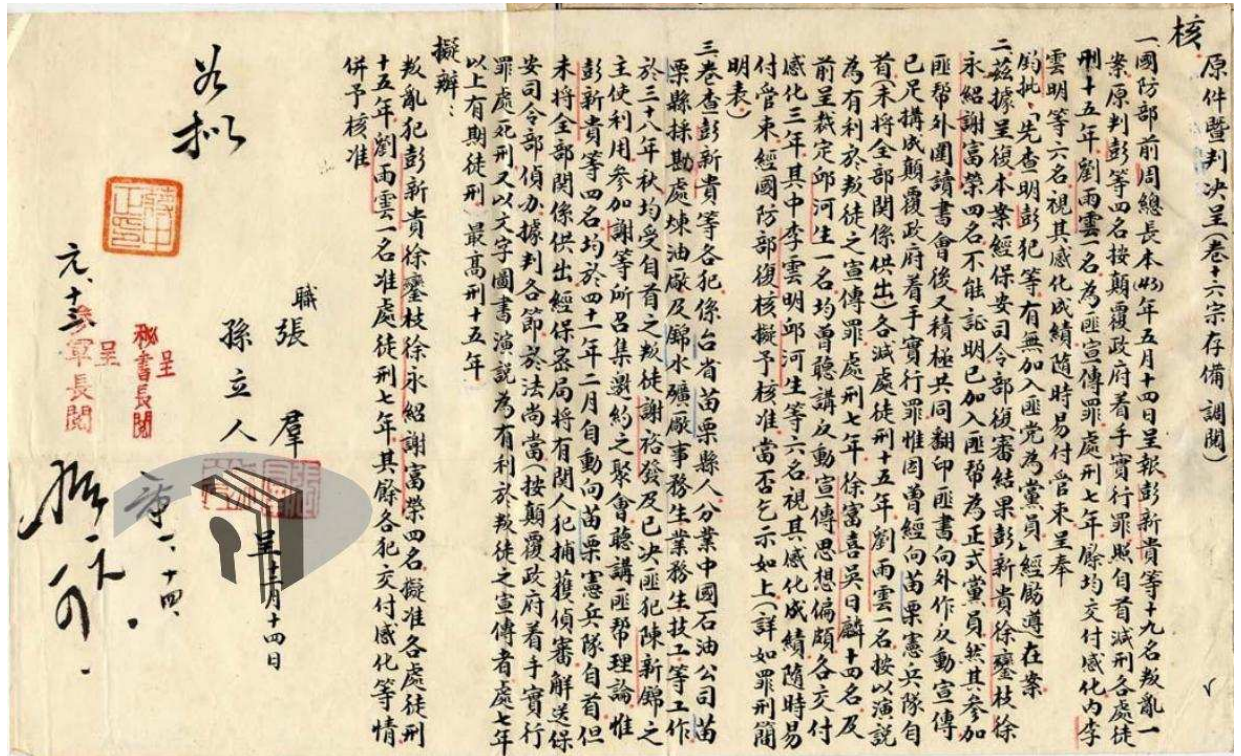 核
原件暨判决呈(卷十六宗存備調閱)
一、國防部前周總長本(43)年五月十四日呈報彭新貴等十九名叛亂一
案原判彭等四名按顛覆政府着手實行罪照自首減刑各處徒
刑十五年劉雨雲一名為匪宣傳罪處刑七年餘均交付感化內李
雲明等六名視其感化成績隨時易付管束呈奉
鈞批「先查明彭犯等有無加入匪党為黨員」經飭遵在案
二、茲據呈復本案經保安司令部復審結果彭新貴徐鑾枝徐
永紹謝富榮四名不能証明已加入匪幫為正式黨員然其參加
匪幫外圍讀書會後又積極共同翻印匪書向外作反動宣傳
已足搆成顛覆政府着手實行罪惟因曾經向苗栗憲兵隊自
首(未將全部関係供出)各減處徒刑十五年劉雨雲一名按以演説
為有利於叛徒之宣傳罪處刑七年徐富喜吳日麟十四名及
前呈裁定邱河生一名均曾聽講反動宣傳思想偏頗各交付
感化三年其中李雲明邱河生等六名視其感化成績隨時易
付管束經國防部復核擬予核准當否乞示如上(詳如罪刑簡
明表)
三、卷查彭新貴等各犯係台省苗栗縣人分業中國石油公司苗
栗縣採勘處煉油廠及錦水礦廠事務生業務生技工等工作
於三十八年秋均受自首之叛徒謝裕發及已决匪犯陳新錦之
主使利用參加謝等所召集邀約之聚會聽講匪幫理論惟
彭新貴等四名均於四十一年二月自動向苗栗憲兵隊自首但
未將全部関係供出經保密局將有関人犯捕獲偵審解送保
安司令部偵办據判各節於法尚當(按顛覆政府着手實行
罪處死刑又以文字圖書演説為有利於叛徒之宣傳者處七年
以上有期徒刑)最高刑十五年
擬辦：
叛亂犯彭新貴徐鑾枝徐永紹謝富榮四名擬准各處徒刑
十五年劉雨雲一名准處徒刑七年其餘各犯交付感化等情
併予核准
職張羣
孫立人
呈十二月十四日
呈
秘書長閱
呈
參軍長閱
元、十三
一、十四、
如擬
蔣中正印